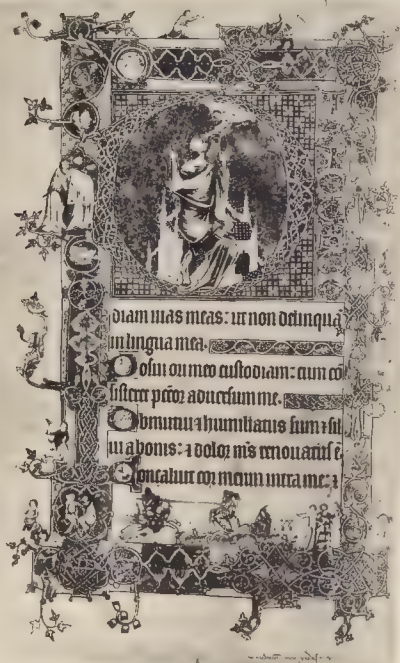 diam uias meas: ut non delinquā
in lingua mea.
Posui ori meo custodiam: cum cō
sisteret pc̄or aduersum me.
Obmutui ⁊ humiliatus sum ⁊ sil
ui a bonis: ⁊ dolor m̄s renouatus ē.
Concaluit cor meum intra me: ⁊